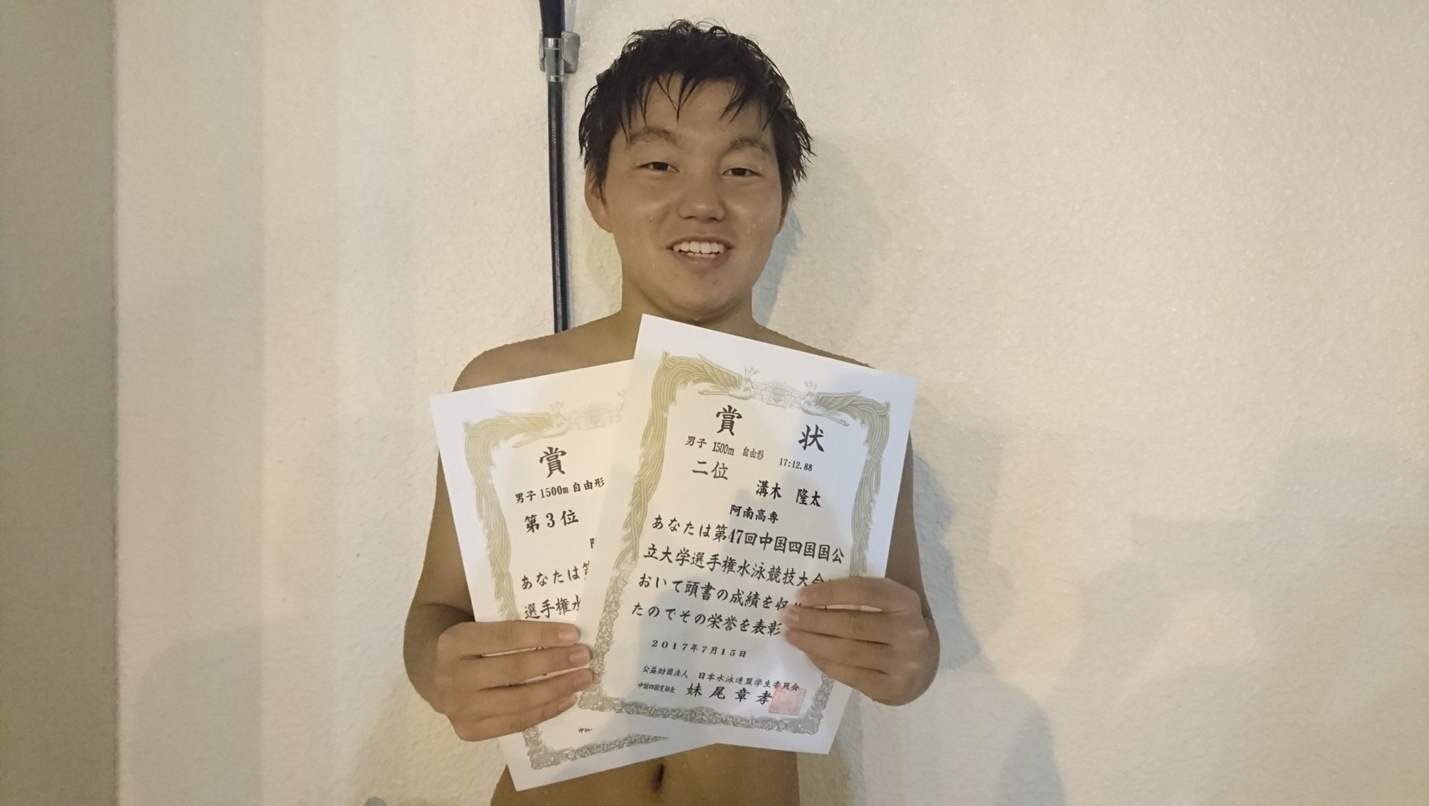 賞
男子 1500m 自由形
第3位
あなたは第
選手権水
賞 状
男子 1500m 自由形 17:12.88
二位
溝木 隆太
阿南高専
あなたは第47回中国四国国公
立大学選手権水泳競技大会
おいて頭書の成績を収め
たのでその栄誉を表彰
2017年7月15日
公益財団法人 日本水泳連盟学生委員会
中国四国支部長 妹尾章孝